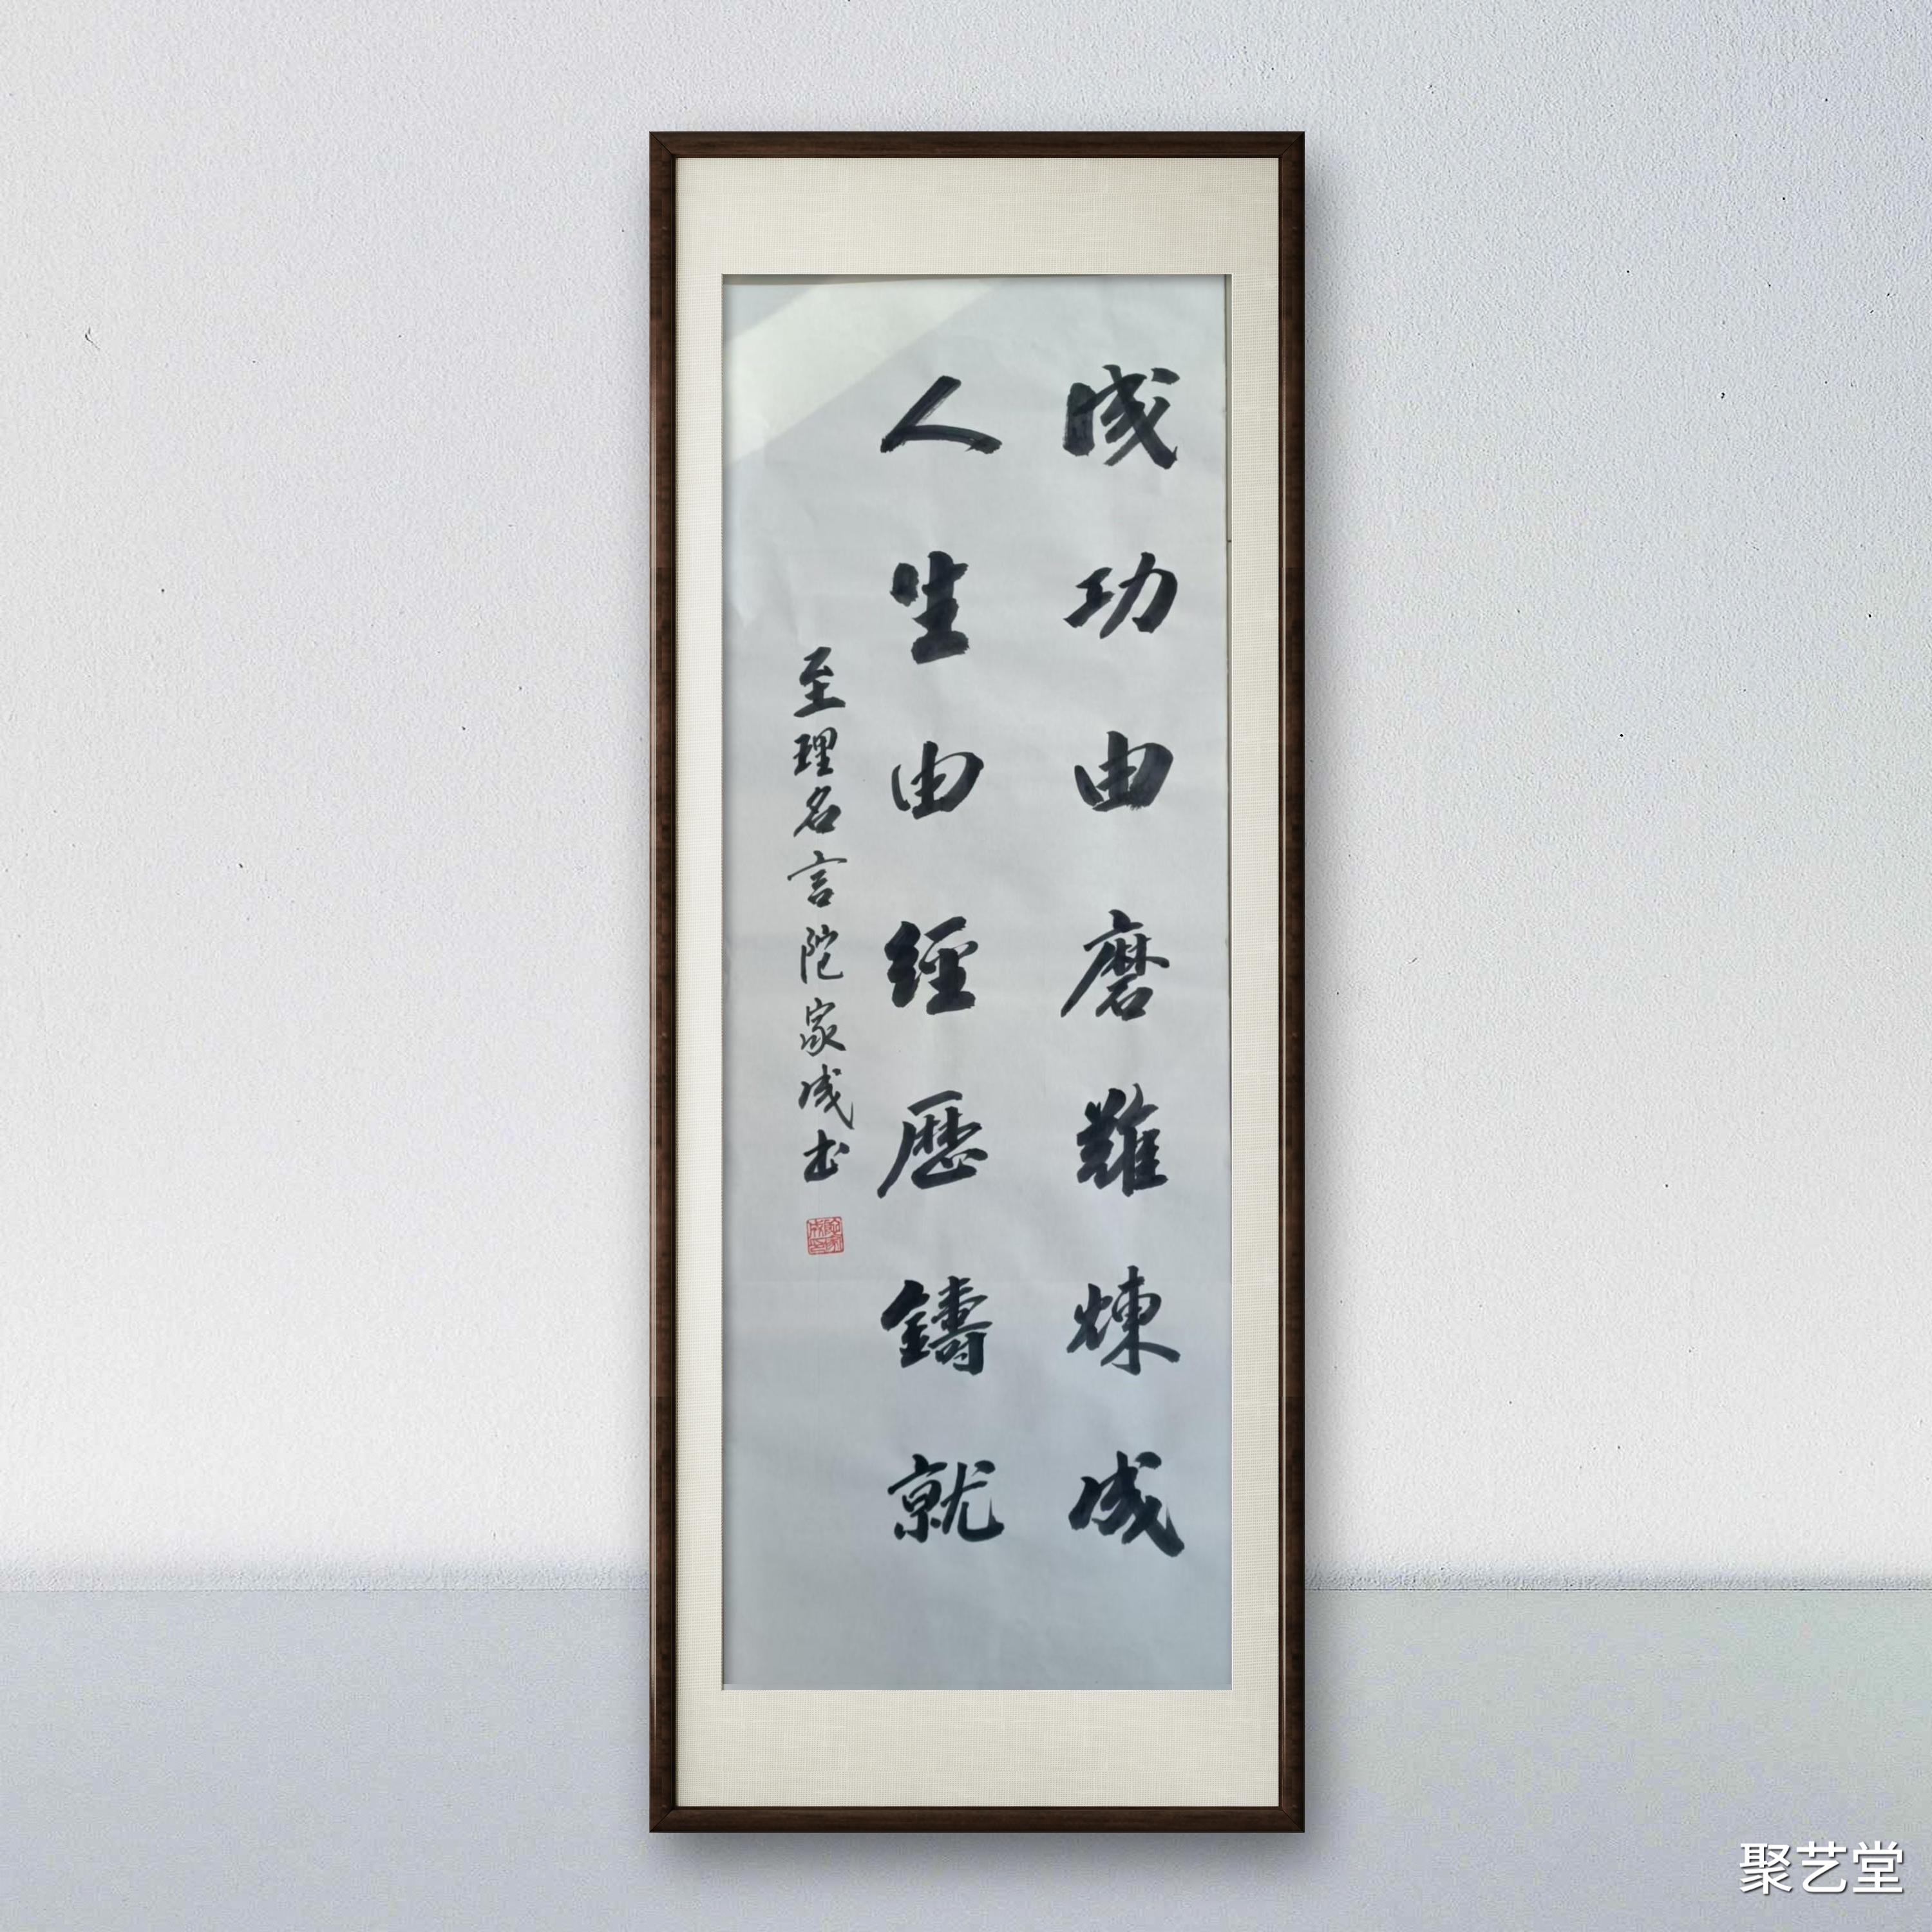 成功由磨難煉成
人生由經歷鑄就
至理名言陀家成书
聚艺堂